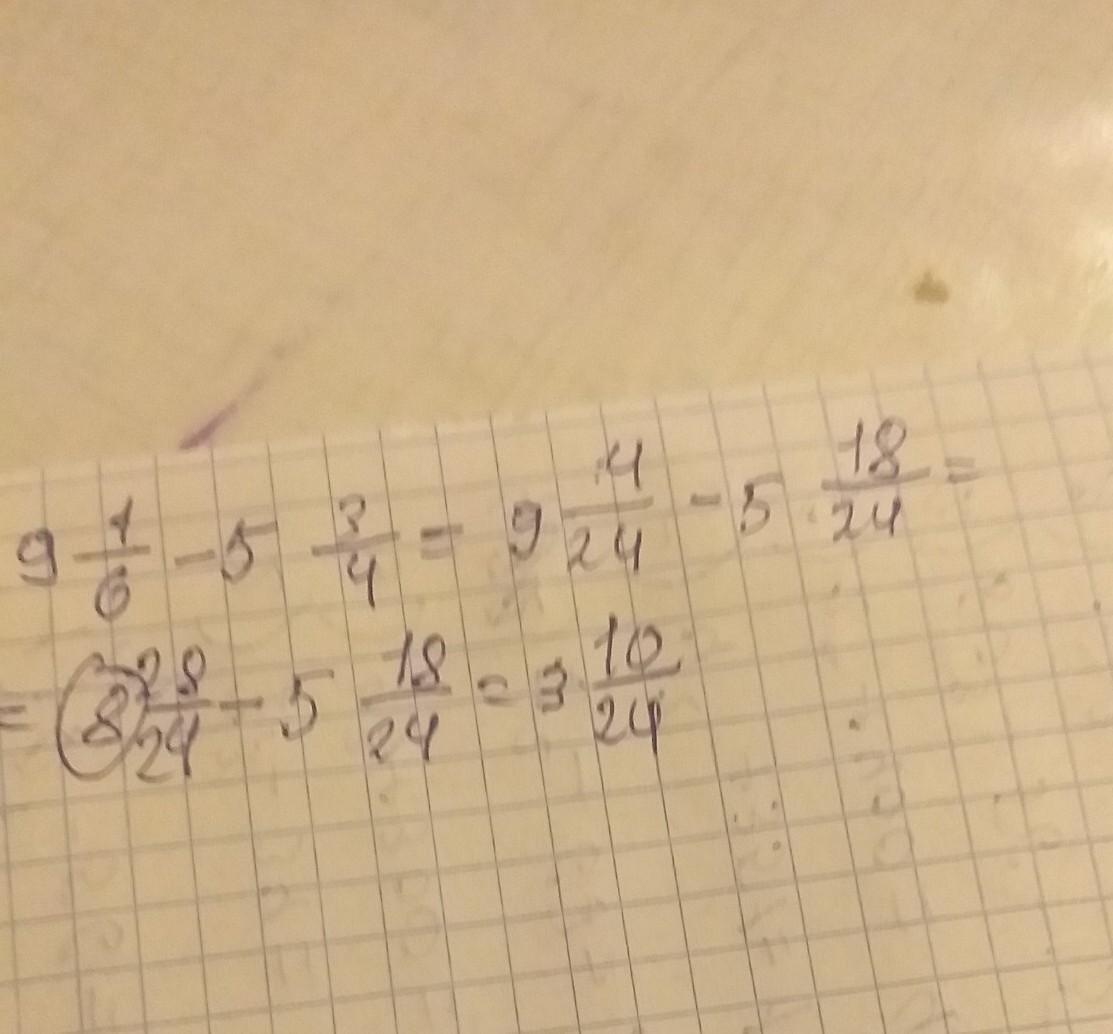 9 1/6 - 5 3/4 = 9 4/24 - 5 18/24 =
= 8 28/24 - 5 18/24 = 3 10/24